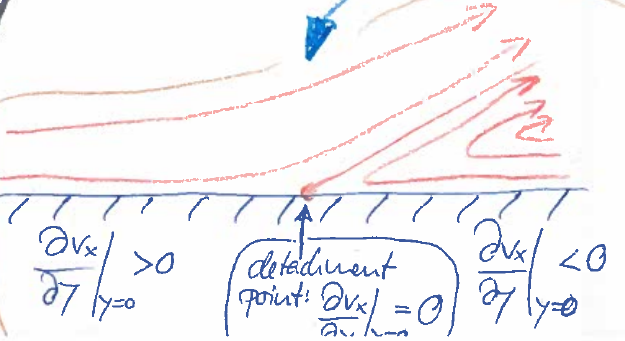 ∂vx/∂y|y=0 >0
detachment
point: ∂vx/∂y|y=0 = 0
∂vx/∂y|y=0 <0